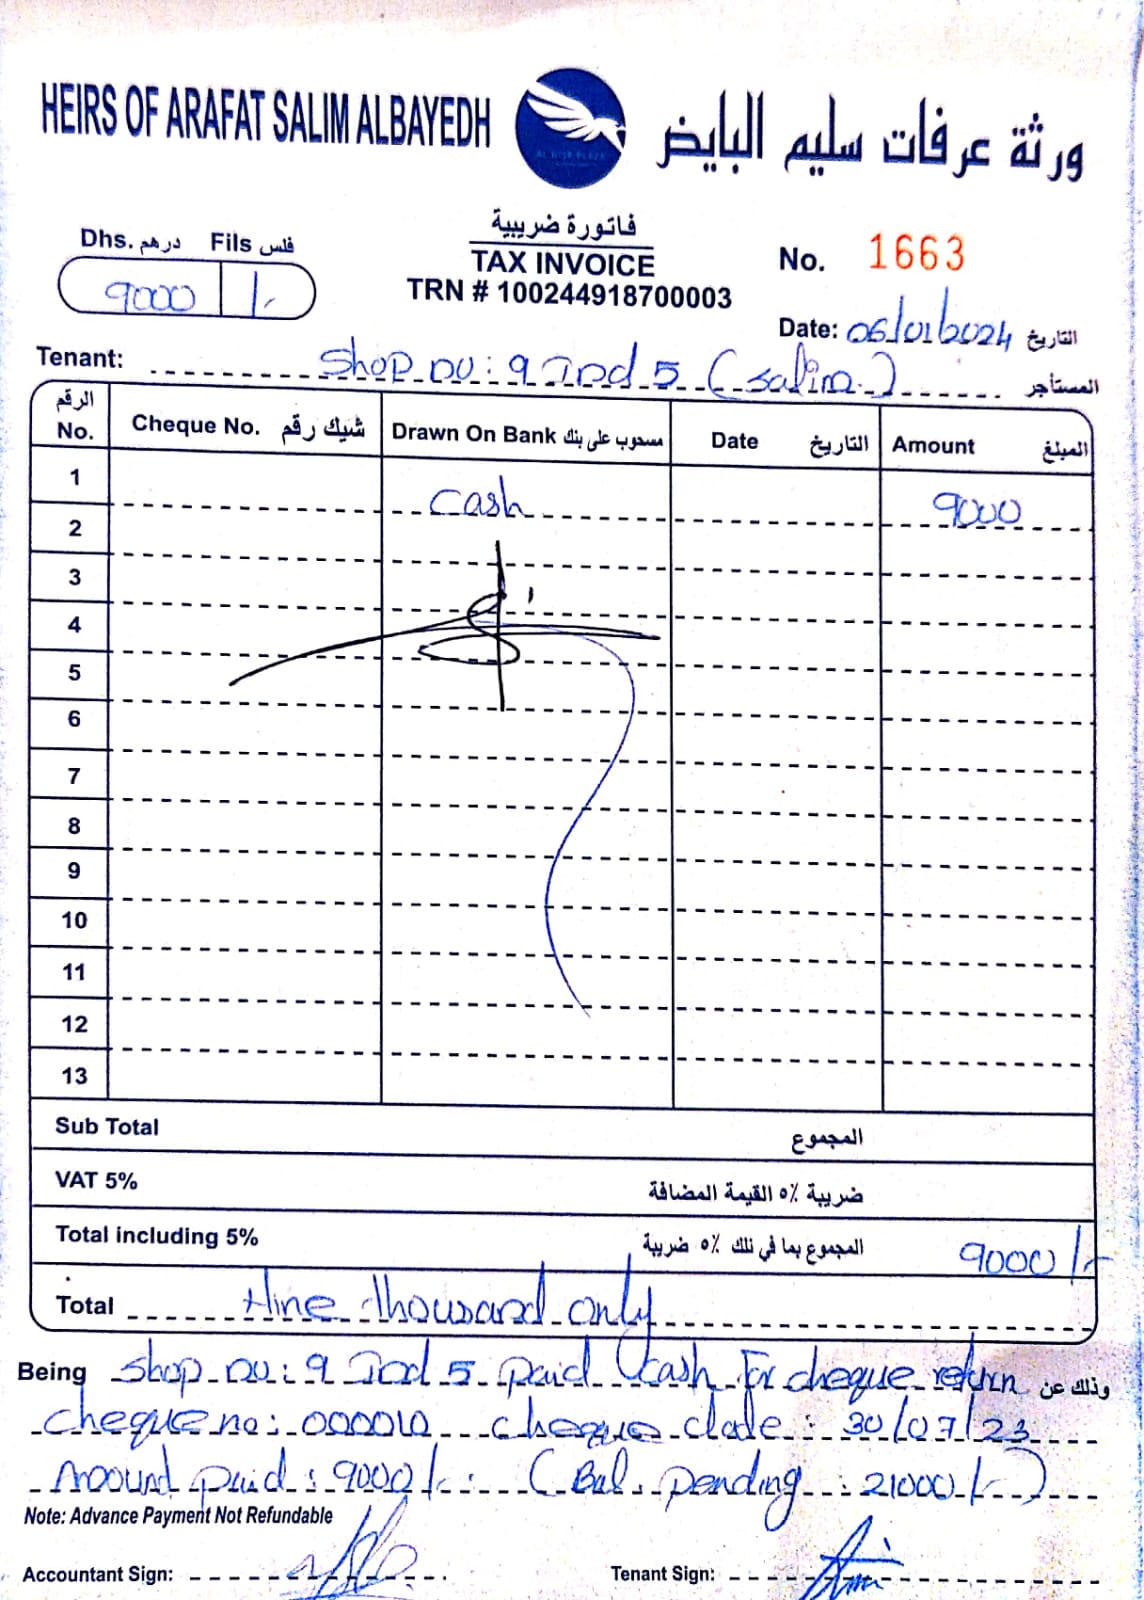 HEIRS OF ARAFAT SALIM ALBAYEDH ورثة عرفات سليم البايض
فاتورة ضريبية
Dhs. درهم Fils فلس
TAX INVOICE
No. 1663
9000 /-
TRN # 100244918700003
Date: 06/01/2024 التاريخ
Tenant: Shop no: 9 Ind 5 (Salim) المستأجر
الرقم No. Cheque No. شيك رقم Drawn On Bank مسحوب على بنك Date التاريخ Amount المبلغ
1 Cash 9000
2
3
4
5
6
7
8
9
10
11
12
13
Sub Total المجموع
VAT 5% ضريبة ٥٪ القيمة المضافة
Total including 5% المجموع بما في ذلك ٥٪ ضريبة 9000/-
Total Nine thousand only
Being Shop no: 9 Ind 5 paid Cash For cheque return وذلك عن
Cheque no: 000010 Cheque date: 30/07/23
Amount paid: 9000/- (Bal. pending: 21000/-)
Note: Advance Payment Not Refundable
Accountant Sign: Tenant Sign: